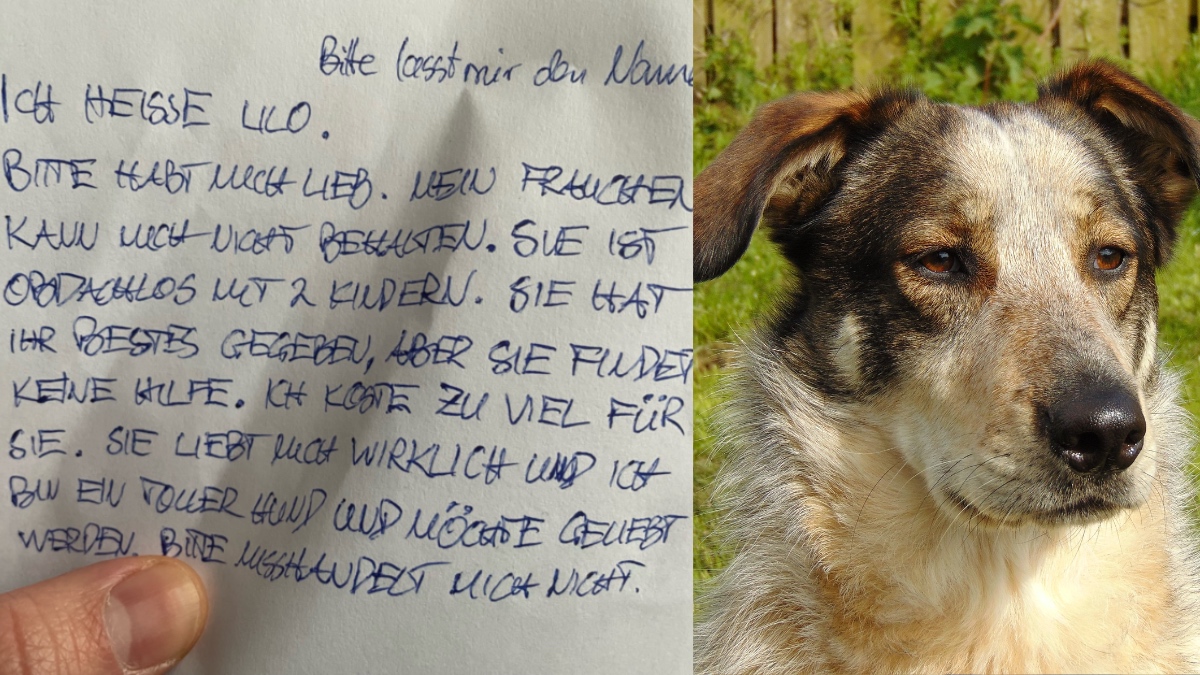 Bitte lasst mir den Name
ICH HEISSE LILO.
BITTE HABT MICH LIEB. MEIN FRAUCHEN
KANN MICH NICHT BEHALTEN. SIE IST
OBDACHLOS MIT 2 KINDERN. SIE HAT
IHR BESTES GEGEBEN, ABER SIE FINDET
KEINE HILFE. ICH KOSTE ZU VIEL FÜR
SIE. SIE LIEBT MICH WIRKLICH UND ICH
BIN EIN TOLLER HUND UND MÖCHTE GELIEBT
WERDEN. BITTE MISSHANDELT MICH NICHT.